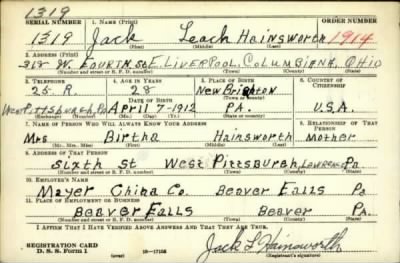 1319
SERIAL NUMBER 1. NAME (Print) ORDER NUMBER
1319 Jack Leach Hainsworth 1914
(First) (Middle) (Last)
2. ADDRESS (Print)
318 W. FOURTH ST E. LIVERPOOL, COLUMBIANA, OHIO
(Number and street or R. F. D. number) (Town) (County) (State)
3. TELEPHONE 4. AGE IN YEARS 5. PLACE OF BIRTH 6. COUNTRY OF CITIZENSHIP
25-R. 28 New Brighton
West Pittsburgh, Pa DATE OF BIRTH (Town or county)
April 7-1912 PA. U.S.A.
(Exchange) (Number) (Mo.) (Day) (Yr.) (State or country)
7. NAME OF PERSON WHO WILL ALWAYS KNOW YOUR ADDRESS 8. RELATIONSHIP OF THAT PERSON
Mrs Birtha Hainsworth Mother
(Mr., Mrs., Miss) (First) (Middle) (Last)
9. ADDRESS OF THAT PERSON
Sixth St West Pittsburgh, Lawrence Pa
(Number and street or R. F. D. number) (Town) (County) (State)
10. EMPLOYER'S NAME
Mayer China Co. Beaver Falls Pa
11. PLACE OF EMPLOYMENT OR BUSINESS
Beaver Falls Beaver PA.
(Number and street or R. F. D. number) (Town) (County) (State)
I AFFIRM THAT I HAVE VERIFIED ABOVE ANSWERS AND THAT THEY ARE TRUE.
REGISTRATION CARD
D. S. S. Form 1 16-17105 Jack L Hainsworth
(Registrant's signature)